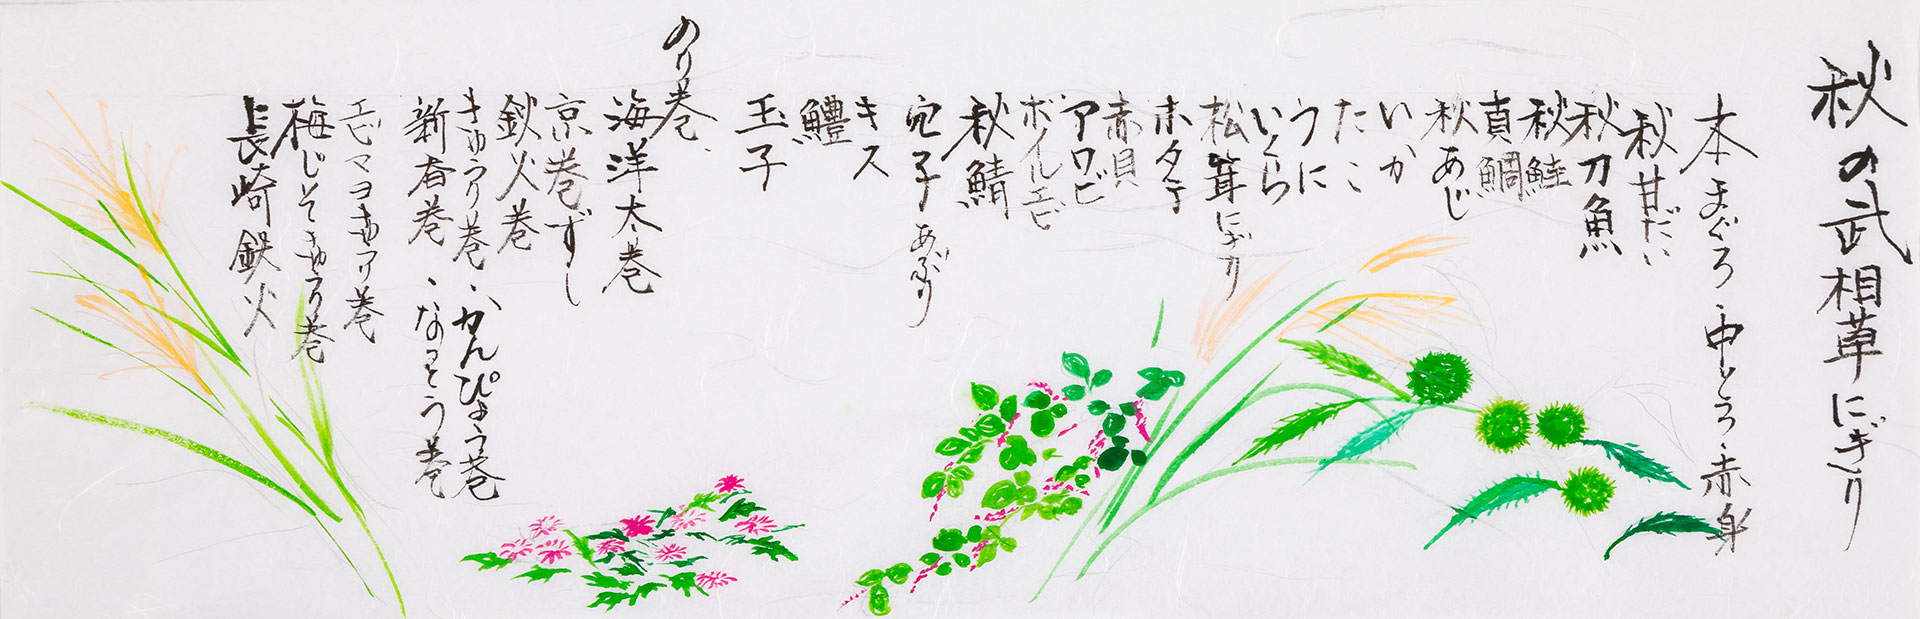 秋の武相草にぎり
本まぐろ・中とろ・赤身
秋甘だい
秋刀魚
秋鮭
真鯛
秋あじ
いか
たこ
うに
いくら
松茸にぎり
ホタテ
赤貝
アワビ
ボイルエビ
秋鯖
穴子あぶり
キス
鱧
玉子
のり巻、
海洋太巻
京巻ずし
鉄火巻
きゅうり巻・かんぴょう巻
新香巻・なっとう巻
エビマヨきゅうり巻
梅じそきゅうり巻
長崎鉄火